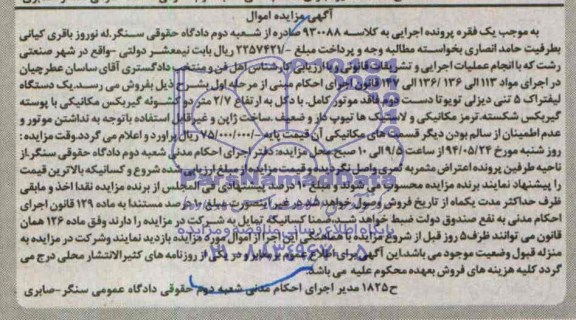 آگهی مزایده اموال
به موجب یک فقره پرونده اجرایی به کلاسه ۹۳۰۰۸۸ صادره از شعبه دوم دادگاه حقوقی سنگر.له نوروز باقری کیانی
بطرفیت حامد انصاری بخواسته مطالبه وجه و پرداخت مبلغ /۲۲۵۷۴۲۱ ریال بابت نیمعشر دولتی -واقع در شهر صنعتی
رشت که با انجام عملیات اجرایی و تشریفات قانونی و با ارزیابی کارشناس اهل فن و منتخب دادگستری آقای ساسان عطرچیان
در اجرای مواد ۱۱۳ الی ۱۳۶/ ۱۳۶ الی ۱۴۷ قانون اجرای احکام مدنی از مرحله اول بشرح ذیل بفروش می رسد.یک دستگاه
لیفتراک ۵ تنی دیزلی تویوتا دست دوم فاقد موتور کامل. با دکل به ارتفاع ۲/۷ متر دو کشوئه گیربکس مکانیکی با پوسته
گیربکس شکسته.ترمز مکانیکی و لاستیک ها تیوپ دار و ضعیف.ساخت ژاپن و غیر قابل استفاده باتوجه به نداشتن موتور و
عدم اطمینان از سالم بودن دیگر قسمت های مکانیکی آن قیمت پایه -/۷۵/۰۰۰/۰۰۰ ریال براورد و اعلام می گردد.وقت مزایده:
روز شنبه مورخ ۹۴/۰۵/۲۴ از ساعت ۹/۵ الی ۱۰ صبح محل مزایده: دفتر اجرای احکام مدنی شعبه دوم دادگاه حقوقی سنگر.از
ناحیه طرفین پرونده اعتراض مثمر به ثمری واصل نگردیده و قیمت مزایده از مبلغ ارزیابی شده شروع و کسانیکه بالاترین قیمت
را پیشنهاد نمایند برنده مزایده محسوب می شوند و مبلغ ۱۰ درصد پیشنهادی فی المجلس از برنده مزایده نقدا اخذ و مابقی
ظرف حداکثر مدت یکماه از تاریخ فروش وصول خواهد شد در غیر اینصورت مبلغ ۱۰ درصد مستندا به ماده ۱۲۹ قانون اجرای
احکام مدنی به نفع صندوق دولت ضبط خواهد شد.ضمنا کسانیکه تمایل به شرکت در مزایده را دارند وفق ماده ۱۲۶ همان
قانون می توانند ظرف ۵ روز قبل از شروع مزایده با هماهنگی این اجرا از اموال مورد مزایده بازدید نمایند وشرکت در مزایده به
منزله قبول وضعیت موجود می باشد.این آگهی برای اطلاع عموم بر مبنای در یکی از روزنامه های کثیرالانتشار محلی درج می
گردد کلیه هزینه های فروش بعهده محکوم علیه می باشد
ح۱۸۲۵ مدیر اجرای احکام مدنی شعبه دوم حقوقی دادگاه عمومی سنگر-صابری
پایگاه اطلاع رسانی مناقصه و مزایده